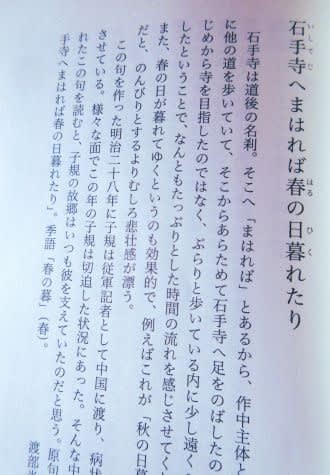 いしてじ はる ひく
石手寺へまはれば春の日暮れたり
石手寺は道後の名刹。そこへ「まはれば」とあるから、作中主体と
に他の道を歩いていて、そこからあらためて石手寺へ足をのばしたの
じめから寺を目指したのではなく、ぶらりと歩いている内に少し遠く
したということで、なんともたっぷりとした時間の流れを感じさせてく
また、春の日が暮れてゆくというのも効果的で、例えばこれが「秋の日暮
だと、のんびりとするよりむしろ悲壮感が漂う。
この句を作った明治二十八年に子規は従軍記者として中国に渡り、病状
させている。様々な面でこの年の子規は切迫した状況にあった。そんな中
れたこの句を読むと、子規の故郷はいつも彼を支えていたのだと思う。原句
手寺へまはれば春の日暮れたり」。季語「春の暮」（春）。
渡部